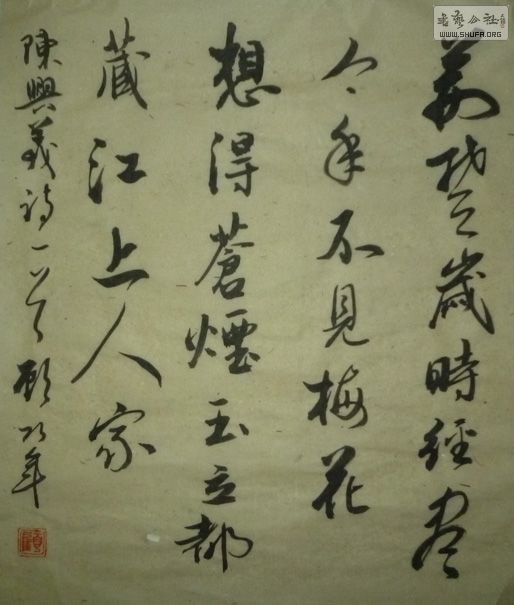 荊楚歲時經盡
今年不見梅花
想得蒼煙玉立都
藏江上人家
陳興義詩一首 顧年
書藝公社
WWW.SHUFA.ORG